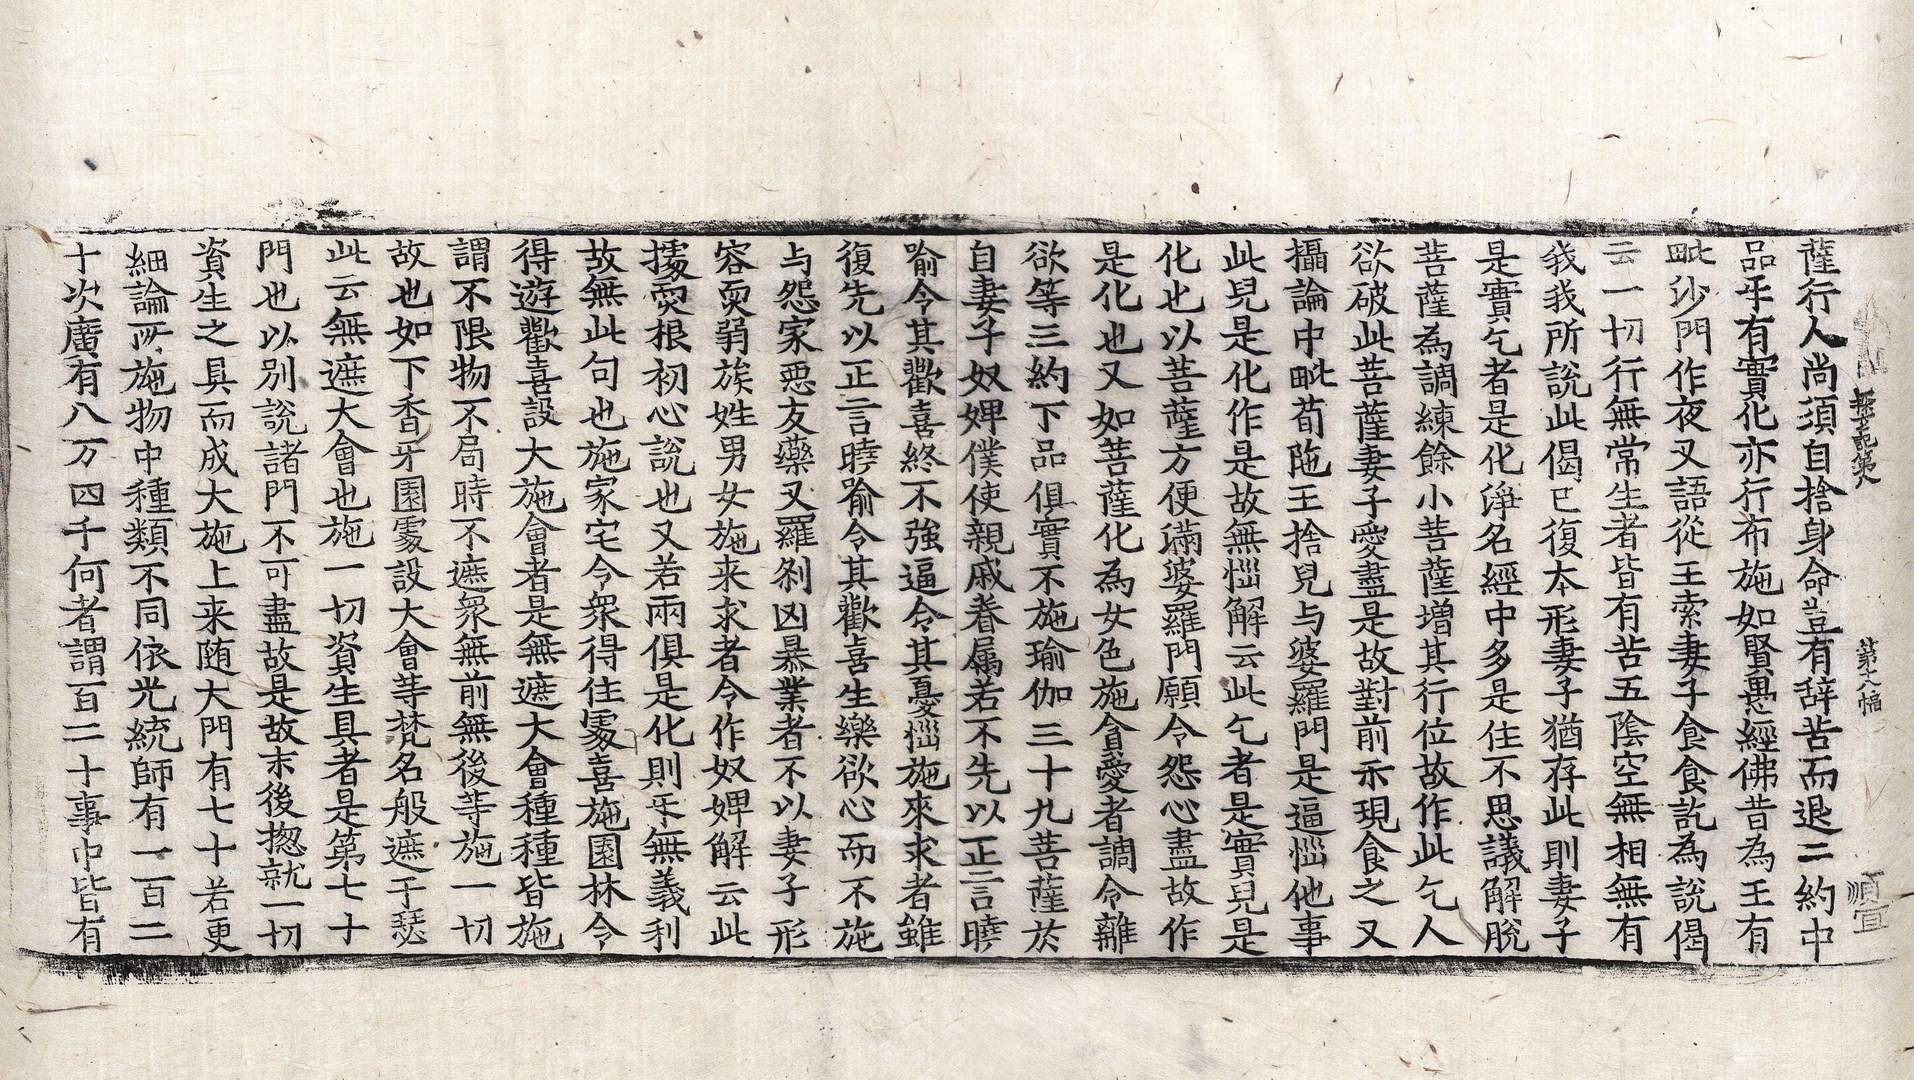 薩行人尚須自捨身命豈有辞苦而退二約中
品乎有實化亦行布施如賢愚經佛昔為王有
毗沙門作夜叉語從王索妻子食食訖為說偈
云一切行無常生者皆有苦五陰空無相無有
我我所說此偈已復本形妻子猶存此則妻子
是實乞者是化淨名經中多是住不思議解脫
菩薩為調練餘小菩薩增其行位故作此乞人
欲破此菩薩妻子愛盡是故對前示現食之又
攝論中毗荀陁王捨兒与婆羅門是逼惱他事
此兒是化作是故無惱解云此乞者是實兒是
化也以菩薩方便滿婆羅門願令怨心盡故作
是化也又如菩薩化為女色施貪愛者調令離
欲等三約下品俱實不施瑜伽三十九菩薩於
自妻子奴婢僕使親戚眷屬若不先以正言曉
喻令其歡喜終不強逼令其憂惱施來求者雖
復先以正言曉喻令其歡喜生樂欲心而不施
与怨家惡友藥叉羅刹凶暴業者不以妻子形
容耎弱族姓男女施来求者令作奴婢解云此
據耎根初心說也又若兩俱是化則乎無義利
故無此句也施家宅令眾得住處喜施園林令
得遊歡喜設大施會者是無遮大會種種皆施
謂不限物不局時不遮眾無前無後等施一切
故也如下香牙園處設大會等梵名般遮于瑟
此云無遮大會也施一切資生具者是第七十
門也以別說諸門不可盡故是故末後揔就一切
資生之具而成大施上来随大門有七十若更
細論所施物中種類不同依光統師有一百二
十次廣有八万四千何者謂百二十事中皆有
第十八幅
順宣